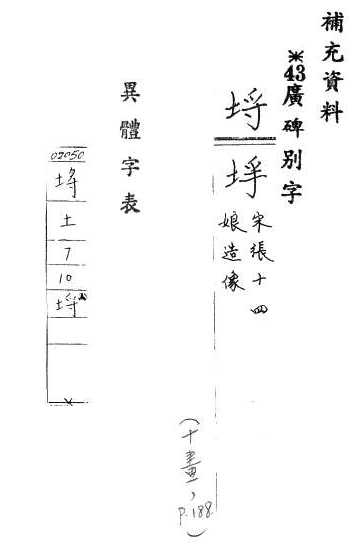 補充資料
※43廣碑别字
埒
宋張十四
娘造像
(十畫,
p.188)
異體字表
02050
埒
土
7
10
埒